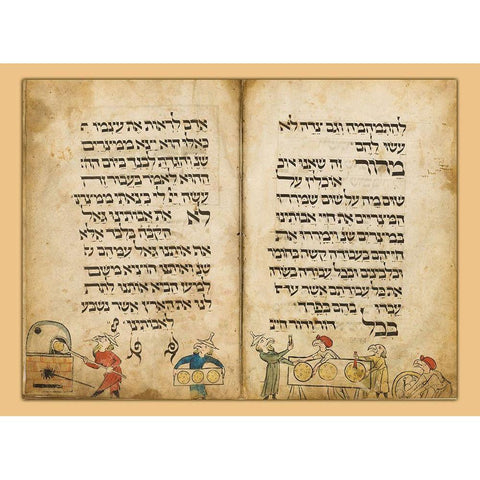 להתמהמה וגם צידה לא
עשו להם
מרור זה שאנו או
אוכלין על
שום מה על שום שמררו
המצריים את חיי אבותינו
במצרים שנ' וימררו את
חייהם בעבודה קשה בחומר
ובלבנים ובכל עבודה בשדה
את כל עבודתם אשר עבדו
בהם בפרך
בכל דור ודור חייב
אדם לראות את עצמו
כאילו הוא יצא ממצרים
שנ' והגדת לבנך ביום
ההוא לאמר בעבור זה
עשה יי לי בצאתי ממצרים
לא את אבותינו גאל
הקבה בלבד אלא
אף אותנו גאל עמהם שנ'
ואותנו הוציא משם
למען הביא אותנו לתת
לנו את הארץ אשר נשבע
לאבותינו